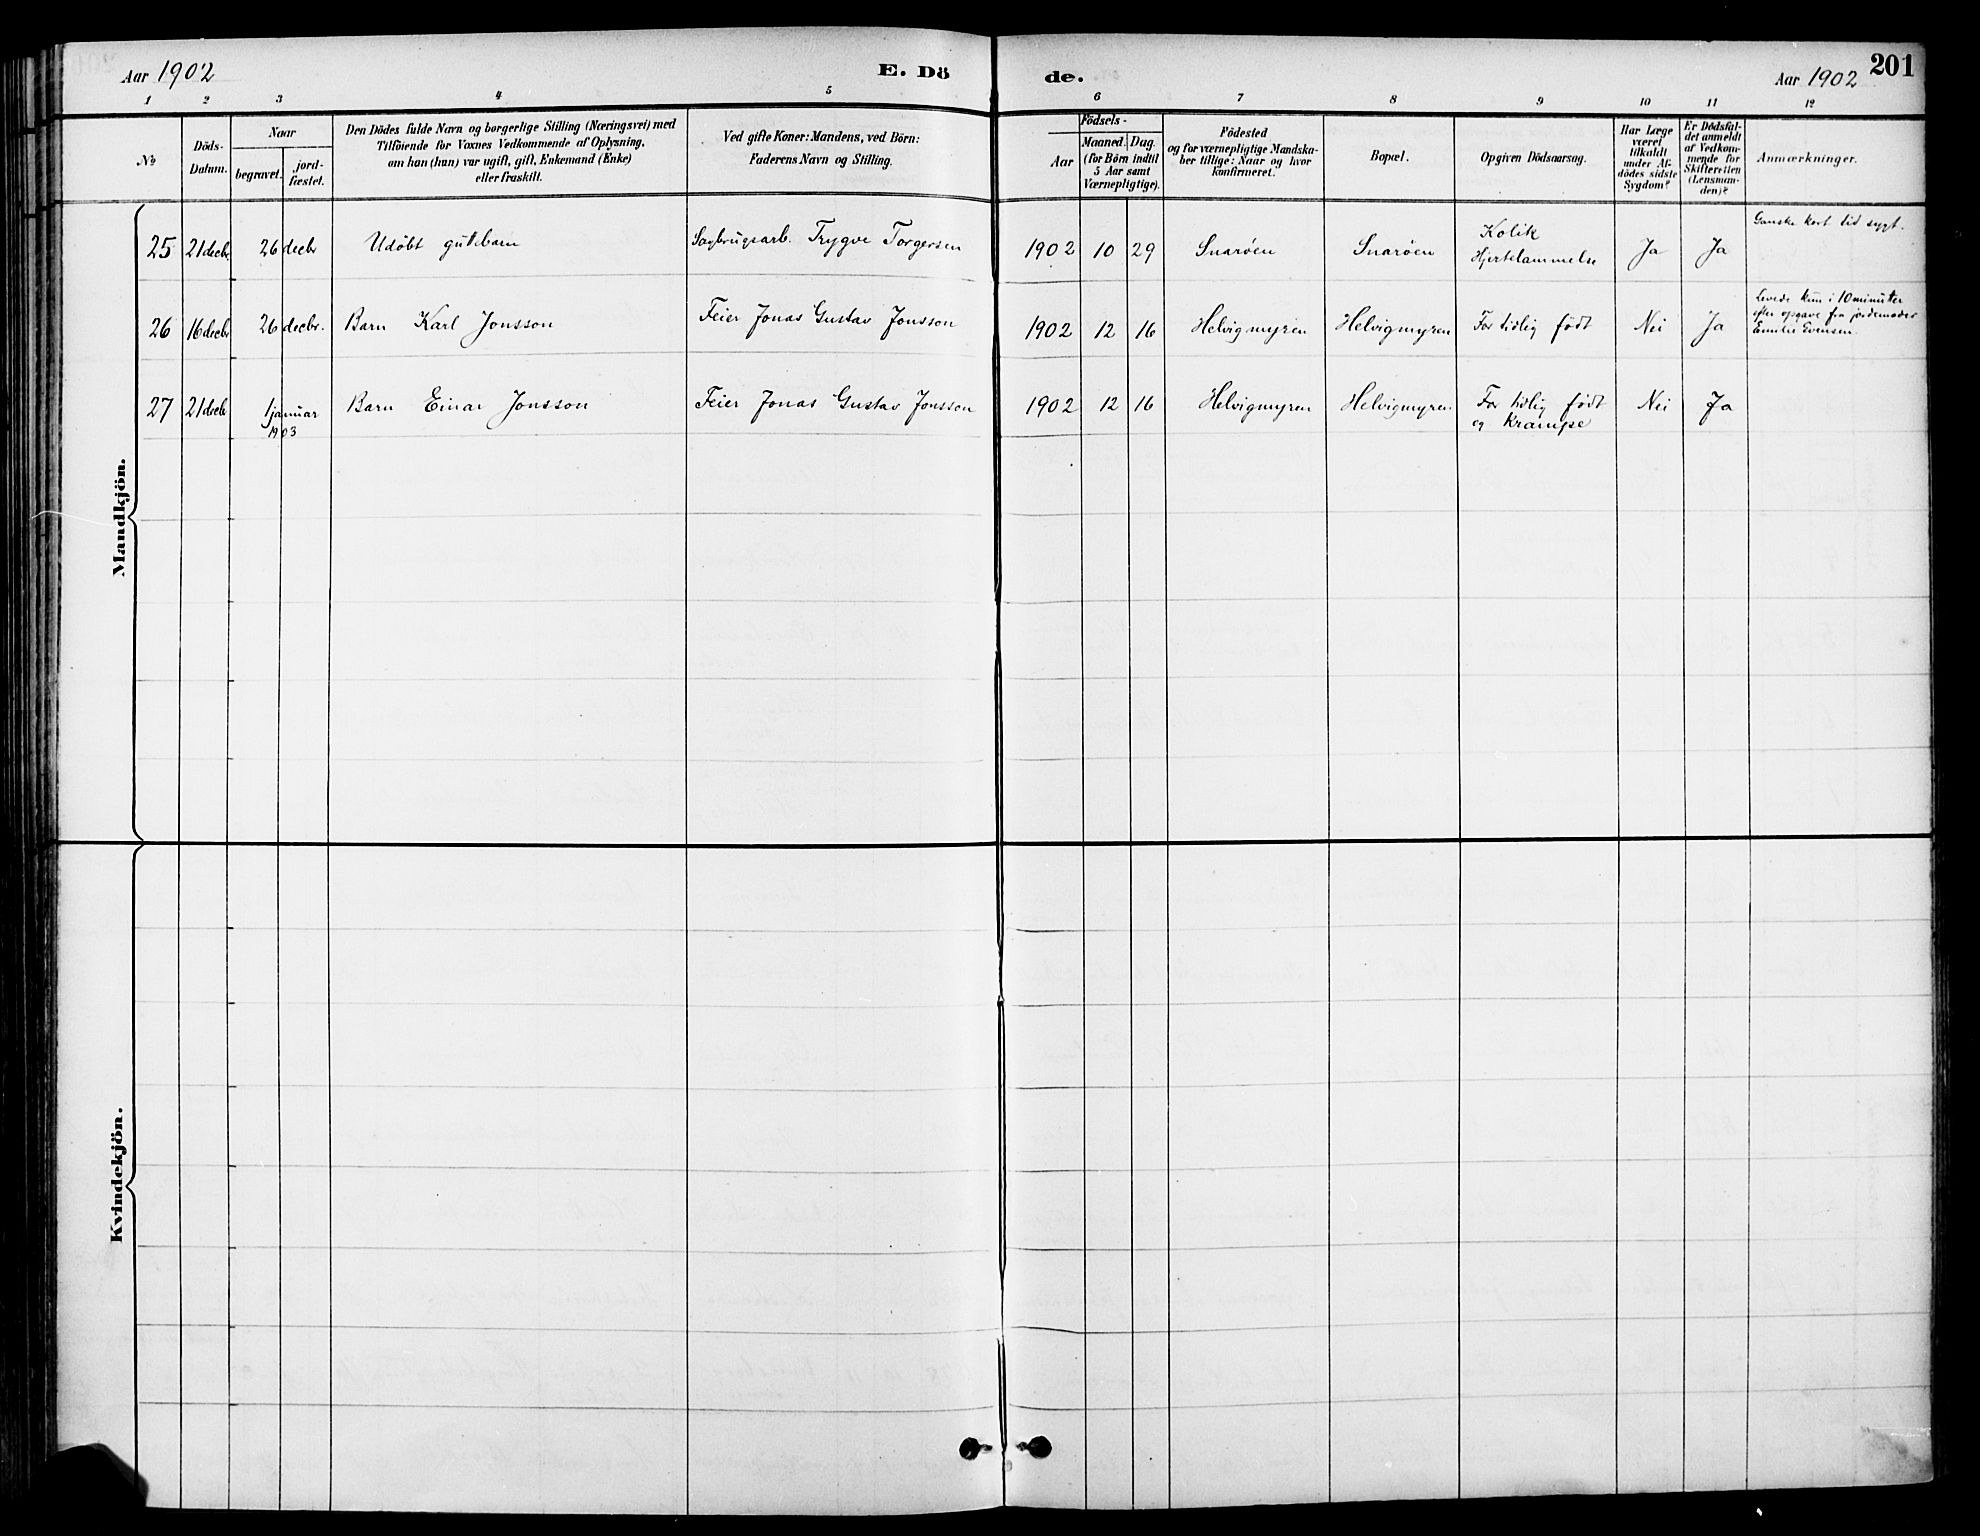 Aar 1902
E. Dö
de.
Aar 1902
201
1 2 3 4 5 6 7 8 9 10 11 12
No
Döds-
Datum.
Naar
begravet.
jord-
fæstet.
Den Dödes fulde Navn og borgerlige Stilling (Næringsvei) med
Tilföiende for Voxnes Vedkommende af Oplysning,
om han (hun) var ugift, gift, Enkemand (Enke)
eller fraskilt.
Ved gifte Koner: Mandens, ved Börn:
Faderens Navn og Stilling.
Födsels-
Aar
Maaned.
Dag
(for Börn indtil
5 Aar samt
Værnepligtige).
Födested
og for værnepligtige Mandska-
ber tillige: Naar og hvor
konfirmeret.
Bopæl.
Opgiven Dödsaarsag.
Har Læge
været
tilkaldt
under Af-
dödes sidste
Sygdom?
Er Dödsfal-
det anmeldt
af Vedkom-
mende for
Skifteretten
(Lensman-
den)?
Anmærkninger.
Mandkjön.
25 21 decbr 26 decbr Udöbt guttebarn Sagbrugsarb. Trygve Torgersen 1902 10 29 Snaröen Snaröen Kolik
Hjertelammelse Ja Ja Ganske kort tid sygt.
26 16 decbr 26 decbr. Barn Karl Jonsson Feier Jonas Gustav Jonsson 1902 12 16 Helvigmyren Helvigmyren For tidlig född Nei Ja Levede kun i 10 minutter
efter opgave fra jordemoder
Emilie Evensen.
27 21 decbr 1 januar
1903 Barn Einar Jonsson Feier Jonas Gustav Jonsson 1902 12 16 Helvigmyren Helvigmyren For tidlig född
og Krampe Nei Ja
Kvindekjön.